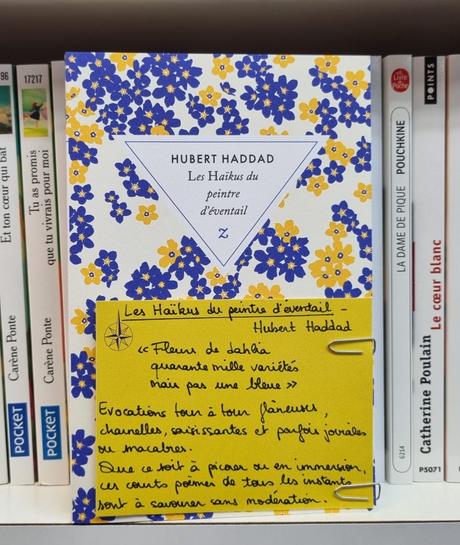 96
Et ton cœur qui bat
Carène Ponte
POCKET
17217
Tu as promis
que tu vivrais pour moi
Carène Ponte
POCKET
HUBERT HADDAD
Les Haïkus du
peintre
d'éventail
Z
Les Haïkus du peintre d'éventail –
Hubert Haddad
« Fleurs de dahlia
quarante mille variétés
mais pas une bleue »
Evocations tour à tour flâneuses,
charnelles, saisissantes et parfois joviales
ou macabres.
Que ce soit à picorer ou en immersion,
ces courts poèmes de tous les instants
sont à savourer sans modération.
Le Livre de Poche
POUCHKINE
LA DAME DE PIQUE
6214
POINTS
Le cœur blanc
Catherine Poulain
P5071